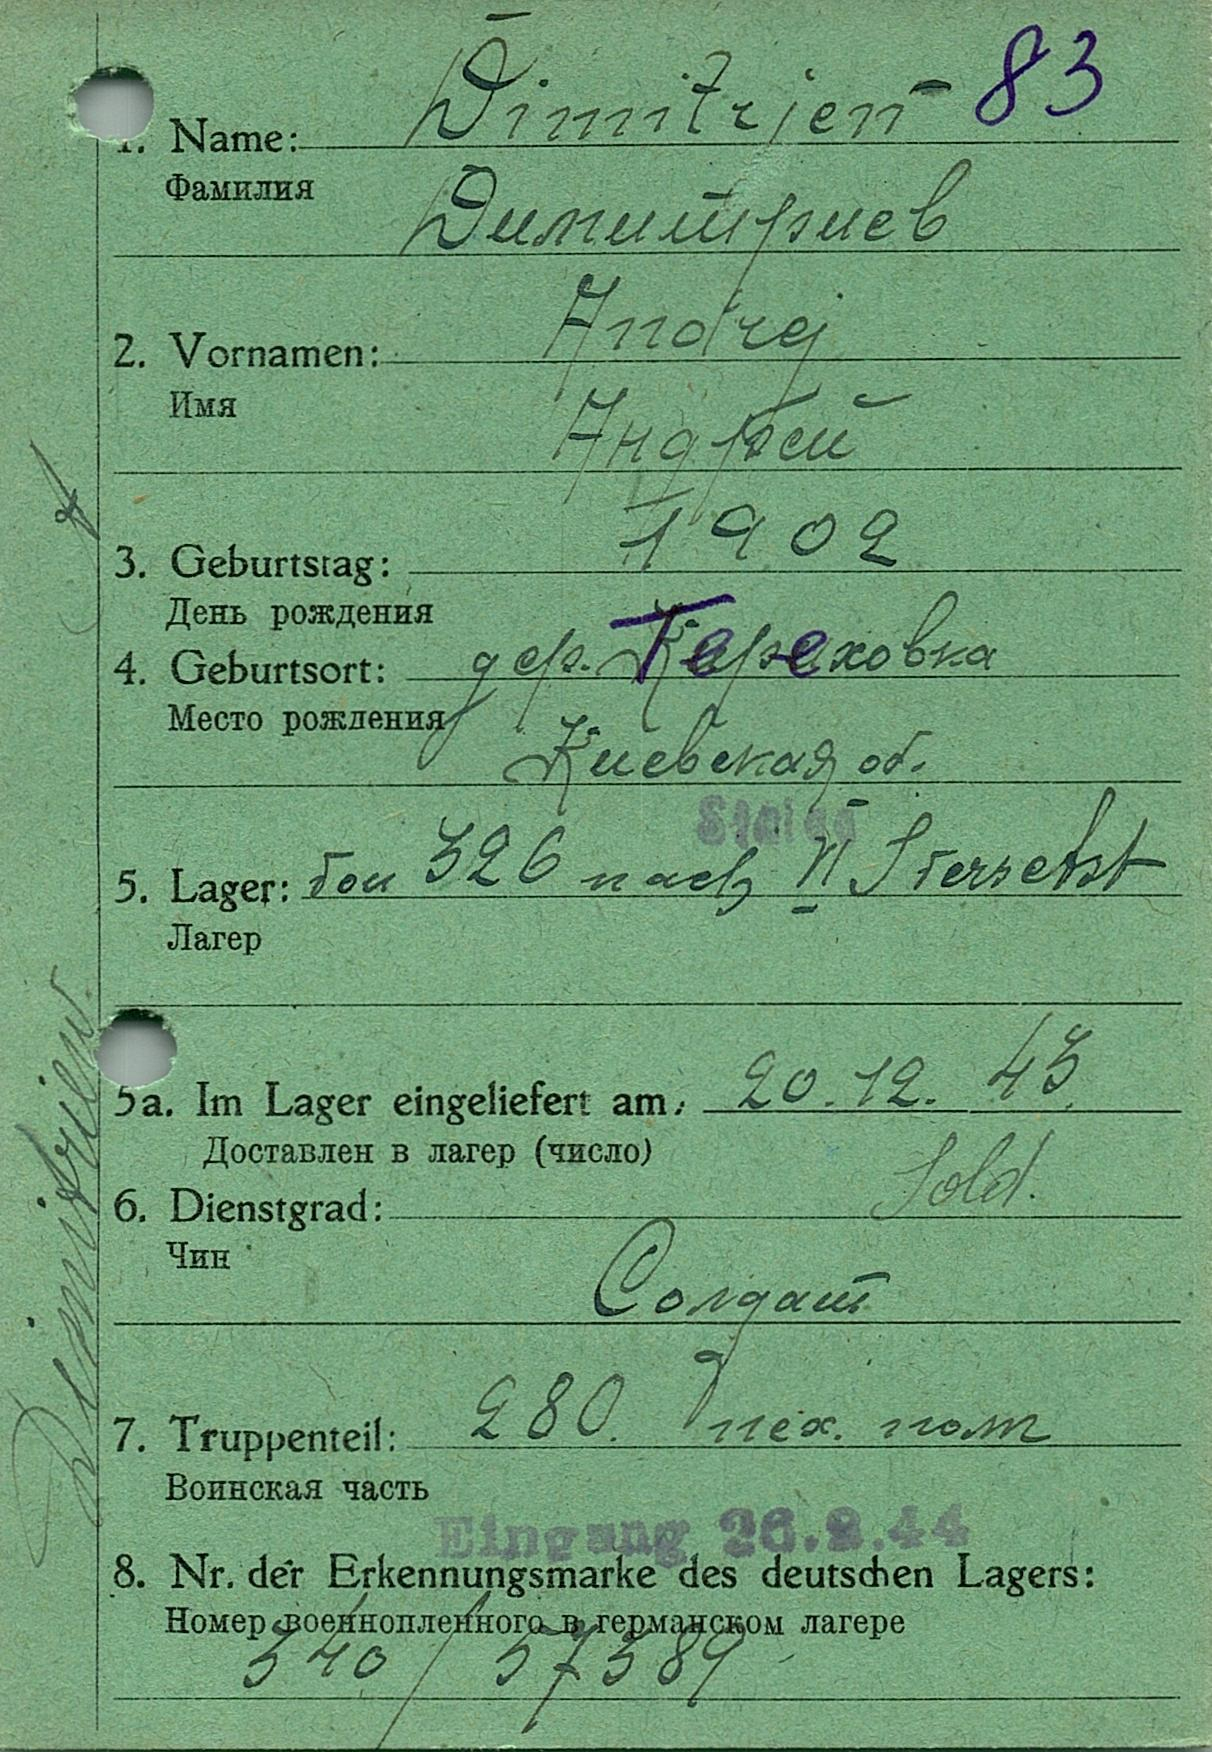 Dimitrjen 83
1. Name:
Фамилия
Димитриев
Andrej
2. Vornamen:
Имя
Андрей
3. Geburtstag: 1902
День рождения
4. Geburtsort: дер. Тереховка
Место рождения
Киевская об.
Stalag
5. Lager: 326 nach VI
Лагер
5a. Im Lager eingeliefert am: 20.12.43
Доставлен в лагер (число)
6. Dienstgrad: Sold.
Чин
Солдат
7. Truppenteil: 280. пех. полк
Воинская часть
Eingang 26.2.44
8. Nr. der Erkennungsmarke des deutschen Lagers:
Номер военнопленного в германском лагере
340/57389
Dimitriew.